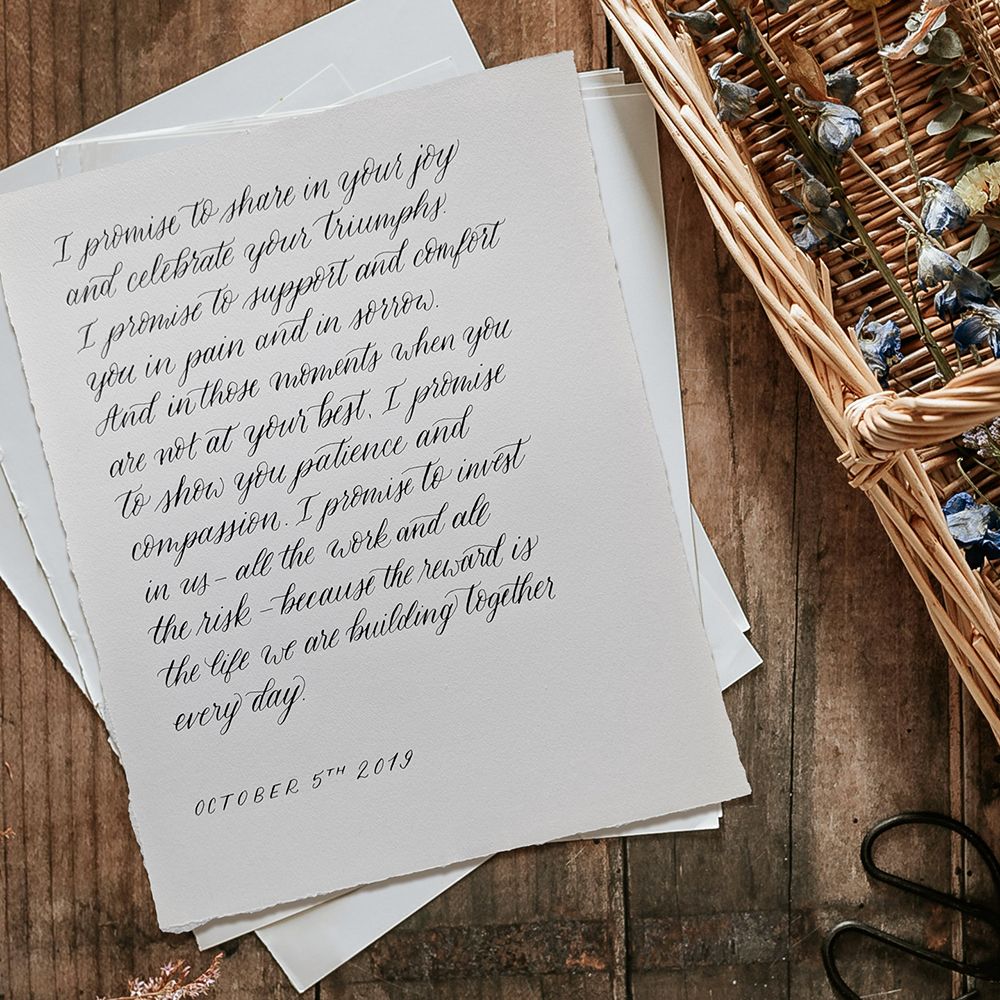 I promise to share in your joy
and celebrate your triumphs.
I promise to support and comfort
you in pain and in sorrow.
And in those moments when you
are not at your best, I promise
to show you patience and
compassion. I promise to invest
in us – all the work and all
the risk – because the reward is
the life we are building together
every day.
OCTOBER 5TH 2019